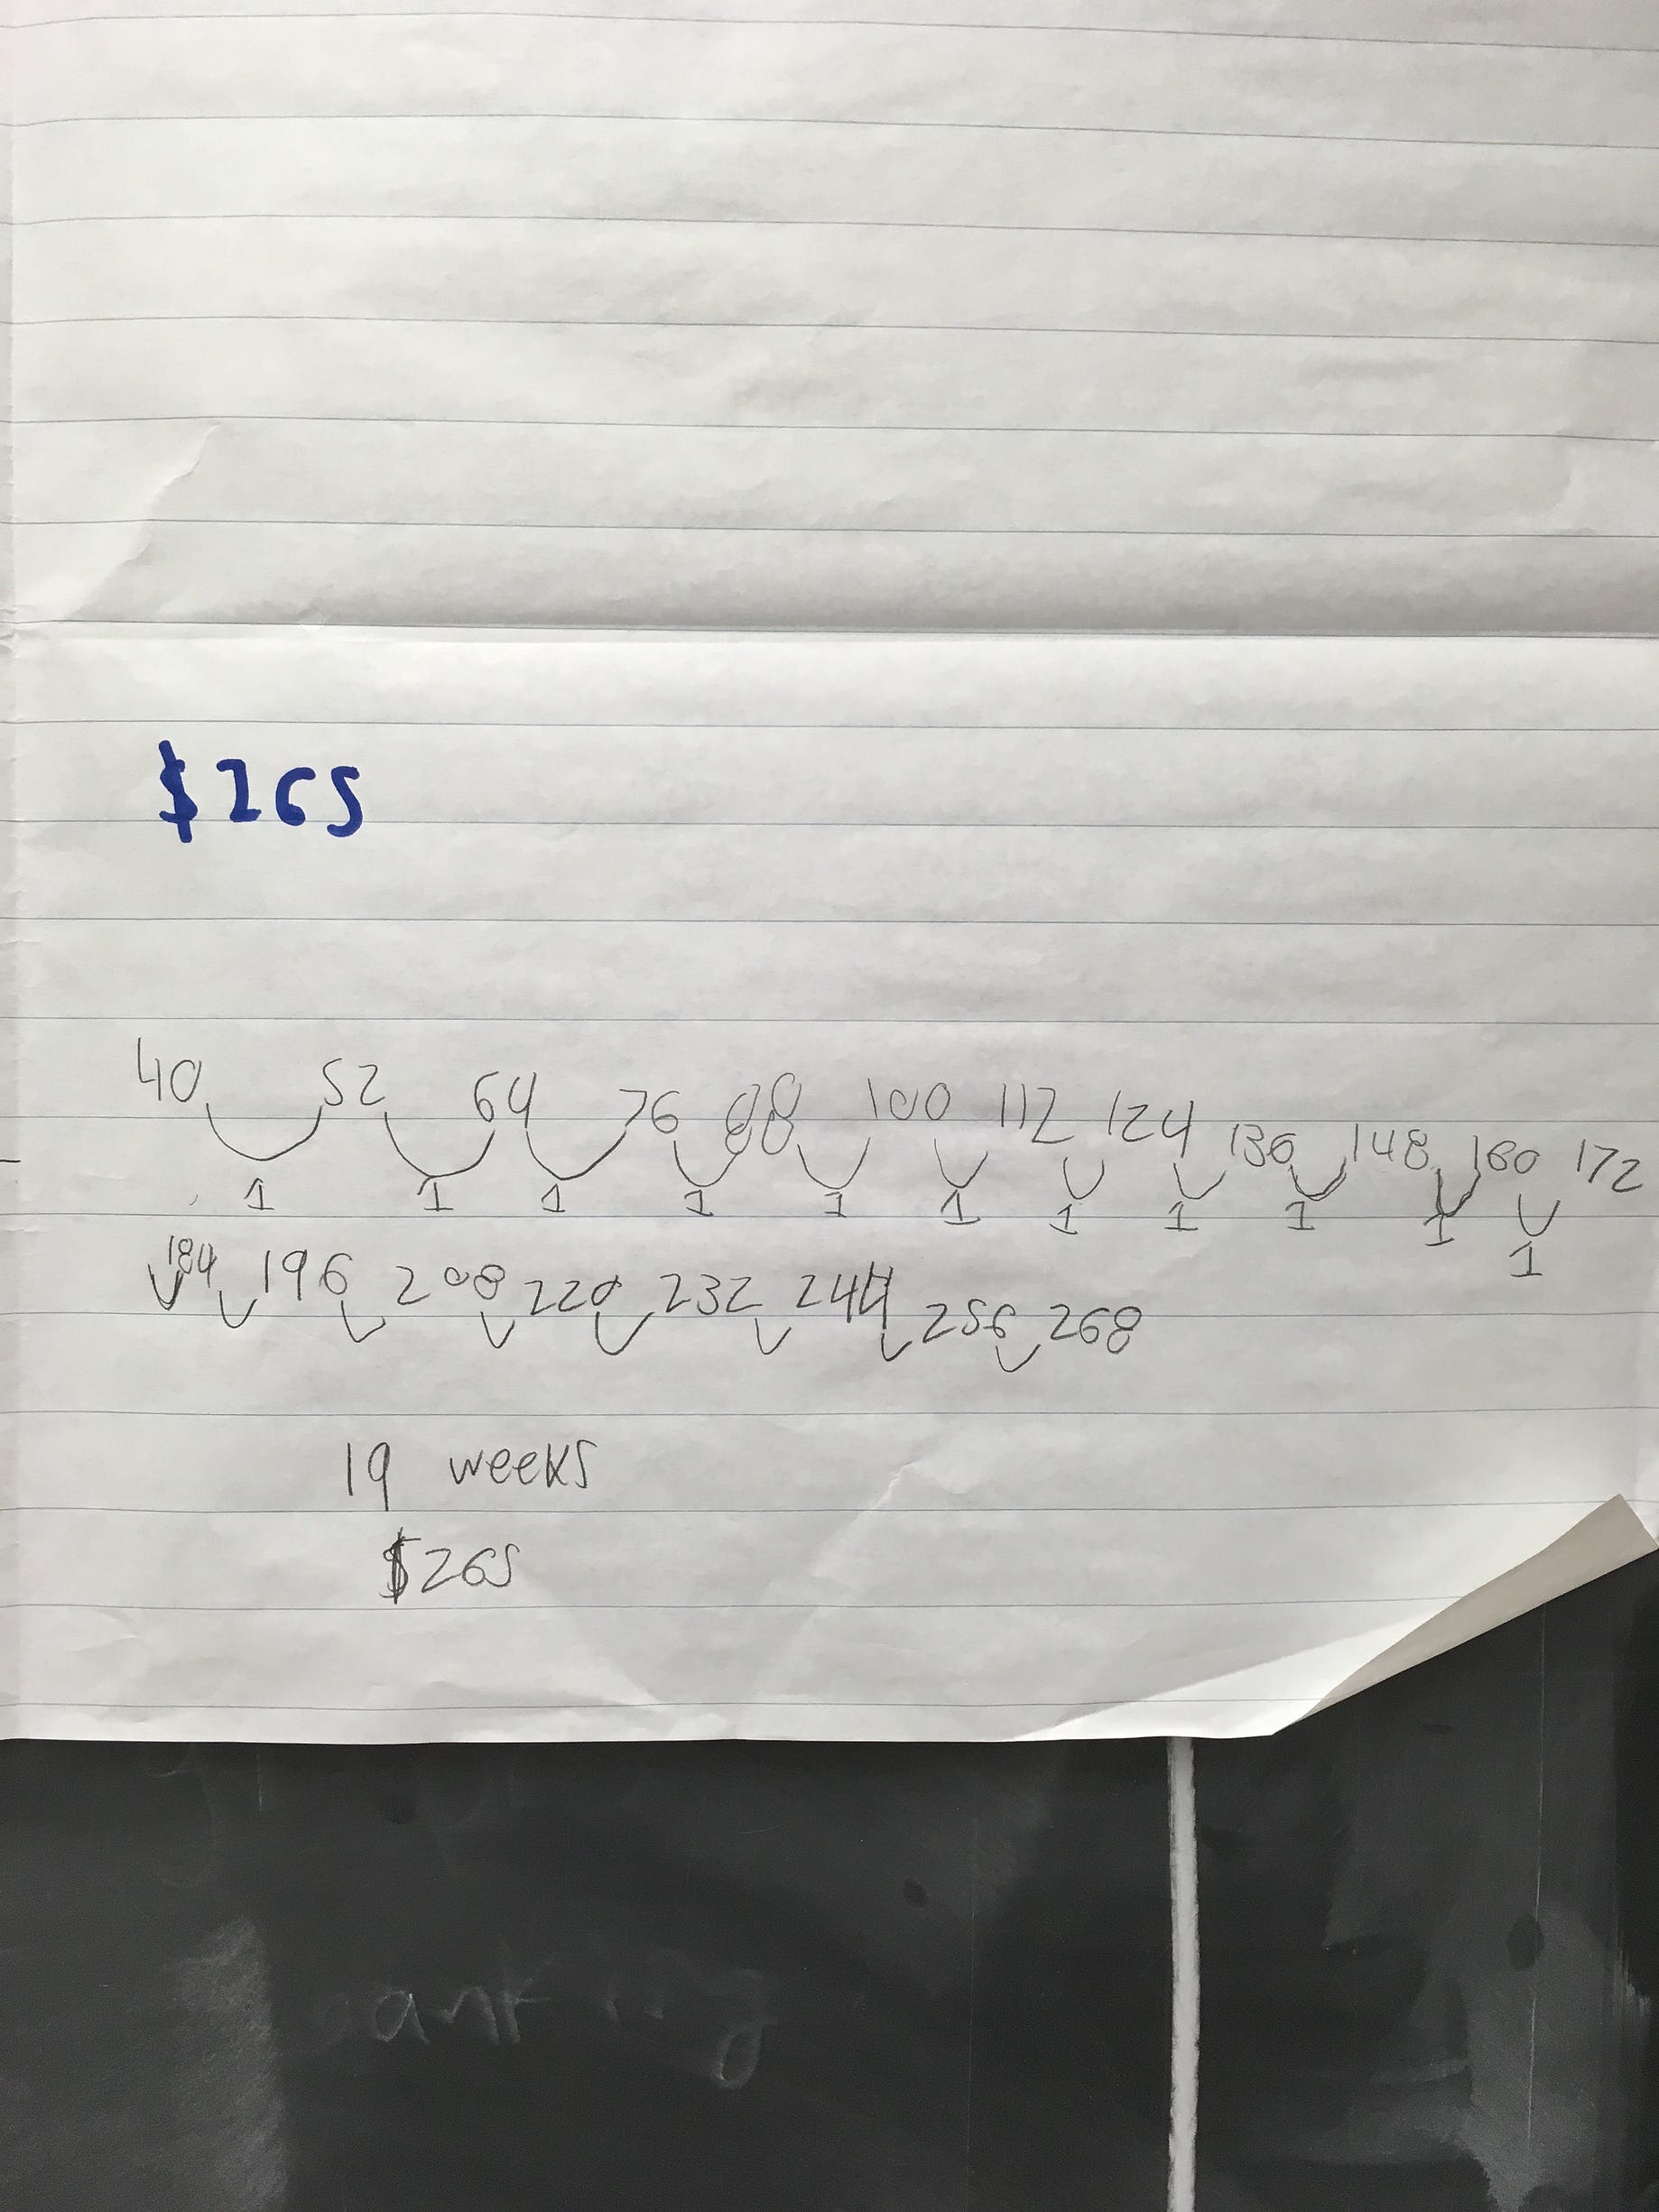 $265
40 52 64 76 88 100 112 124 136 148 160 172
1 1 1 1 1 1 1 1 1 1 1
184 196 208 220 232 244 256 268
19 weeks
$265